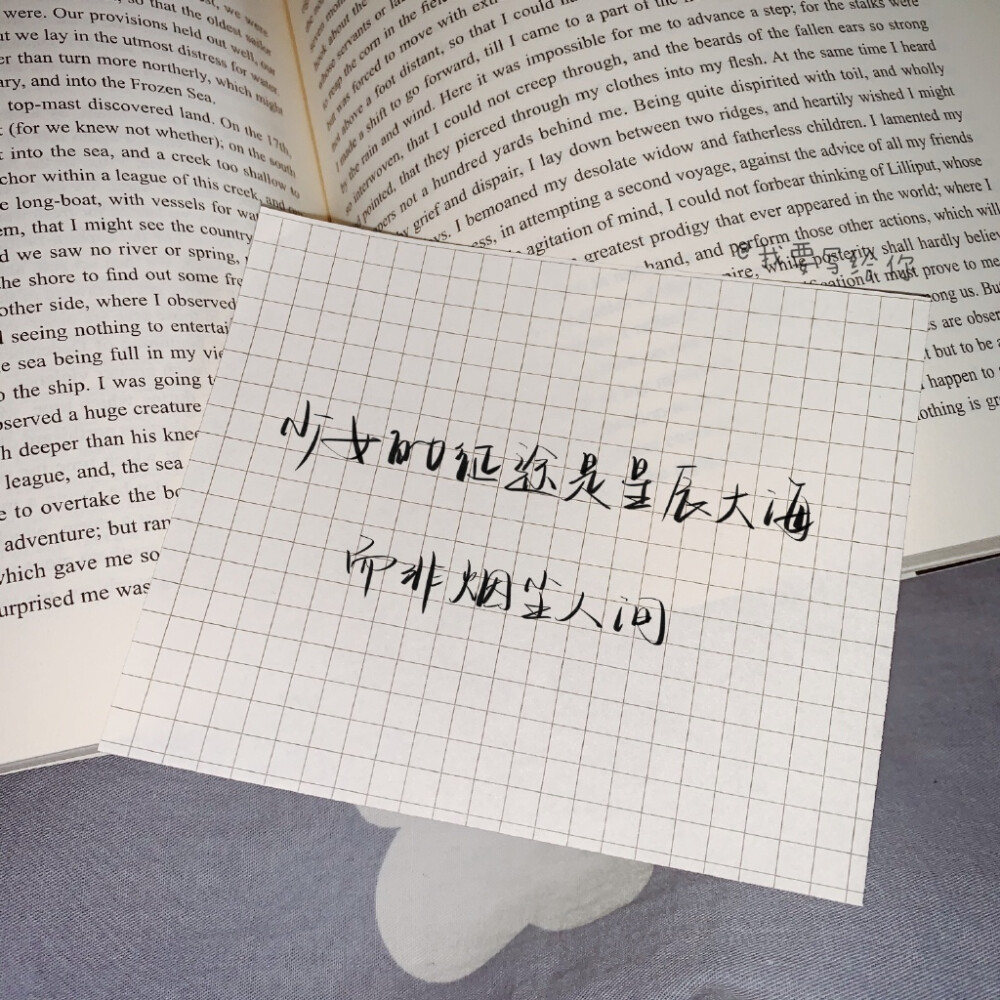 were. Our provisions held out well, our
t we lay in the utmost distress for water
er than turn more northerly, which might
ary, and into the Frozen Sea.
top-mast discovered land. On the 17th
(for we knew not whether); on the south
t into the sea, and a creek too shallow to
chor within a league of this creek, and
e long-boat, with vessels for wa
em, that I might see the country
d we saw no river or spring,
he shore to find out some fre
other side, where I observed
l seeing nothing to entertai
e sea being full in my vie
o the ship. I was going t
bserved a huge creature
h deeper than his kne
league, and, the sea
e to overtake the bo
adventure; but ran
which gave me so
urprised me was
not above a foot distant, so that I could
made a shift to go forward, till I came to a part of the
by the rain and wind. Here it was impossible for me to advance a step; for the stalks were
interwoven, that I could not creep through, and the beards of the fallen ears so strong
pointed, that they pierced through my clothes into my flesh. At the same time I heard
pers not a hundred yards behind me. Being quite dispirited with toil, and wholly
by grief and despair, I lay down between two ridges, and heartily wished I might
ys. I bemoaned my desolate widow and fatherless children. I lamented my
ess, in attempting a second voyage, against the advice of all my friends
agitation of mind, I could not forbear thinking of Lilliput, whose
greatest prodigy that ever appeared in the world; where I
hand, and perform those other actions, which will
ire, while posterity shall hardly believ
must prove to me
ong us. But
s are obser
t but to be a
happen to
othing is gr
@我要写给你
少女的征途是星辰大海
而非烟尘人间